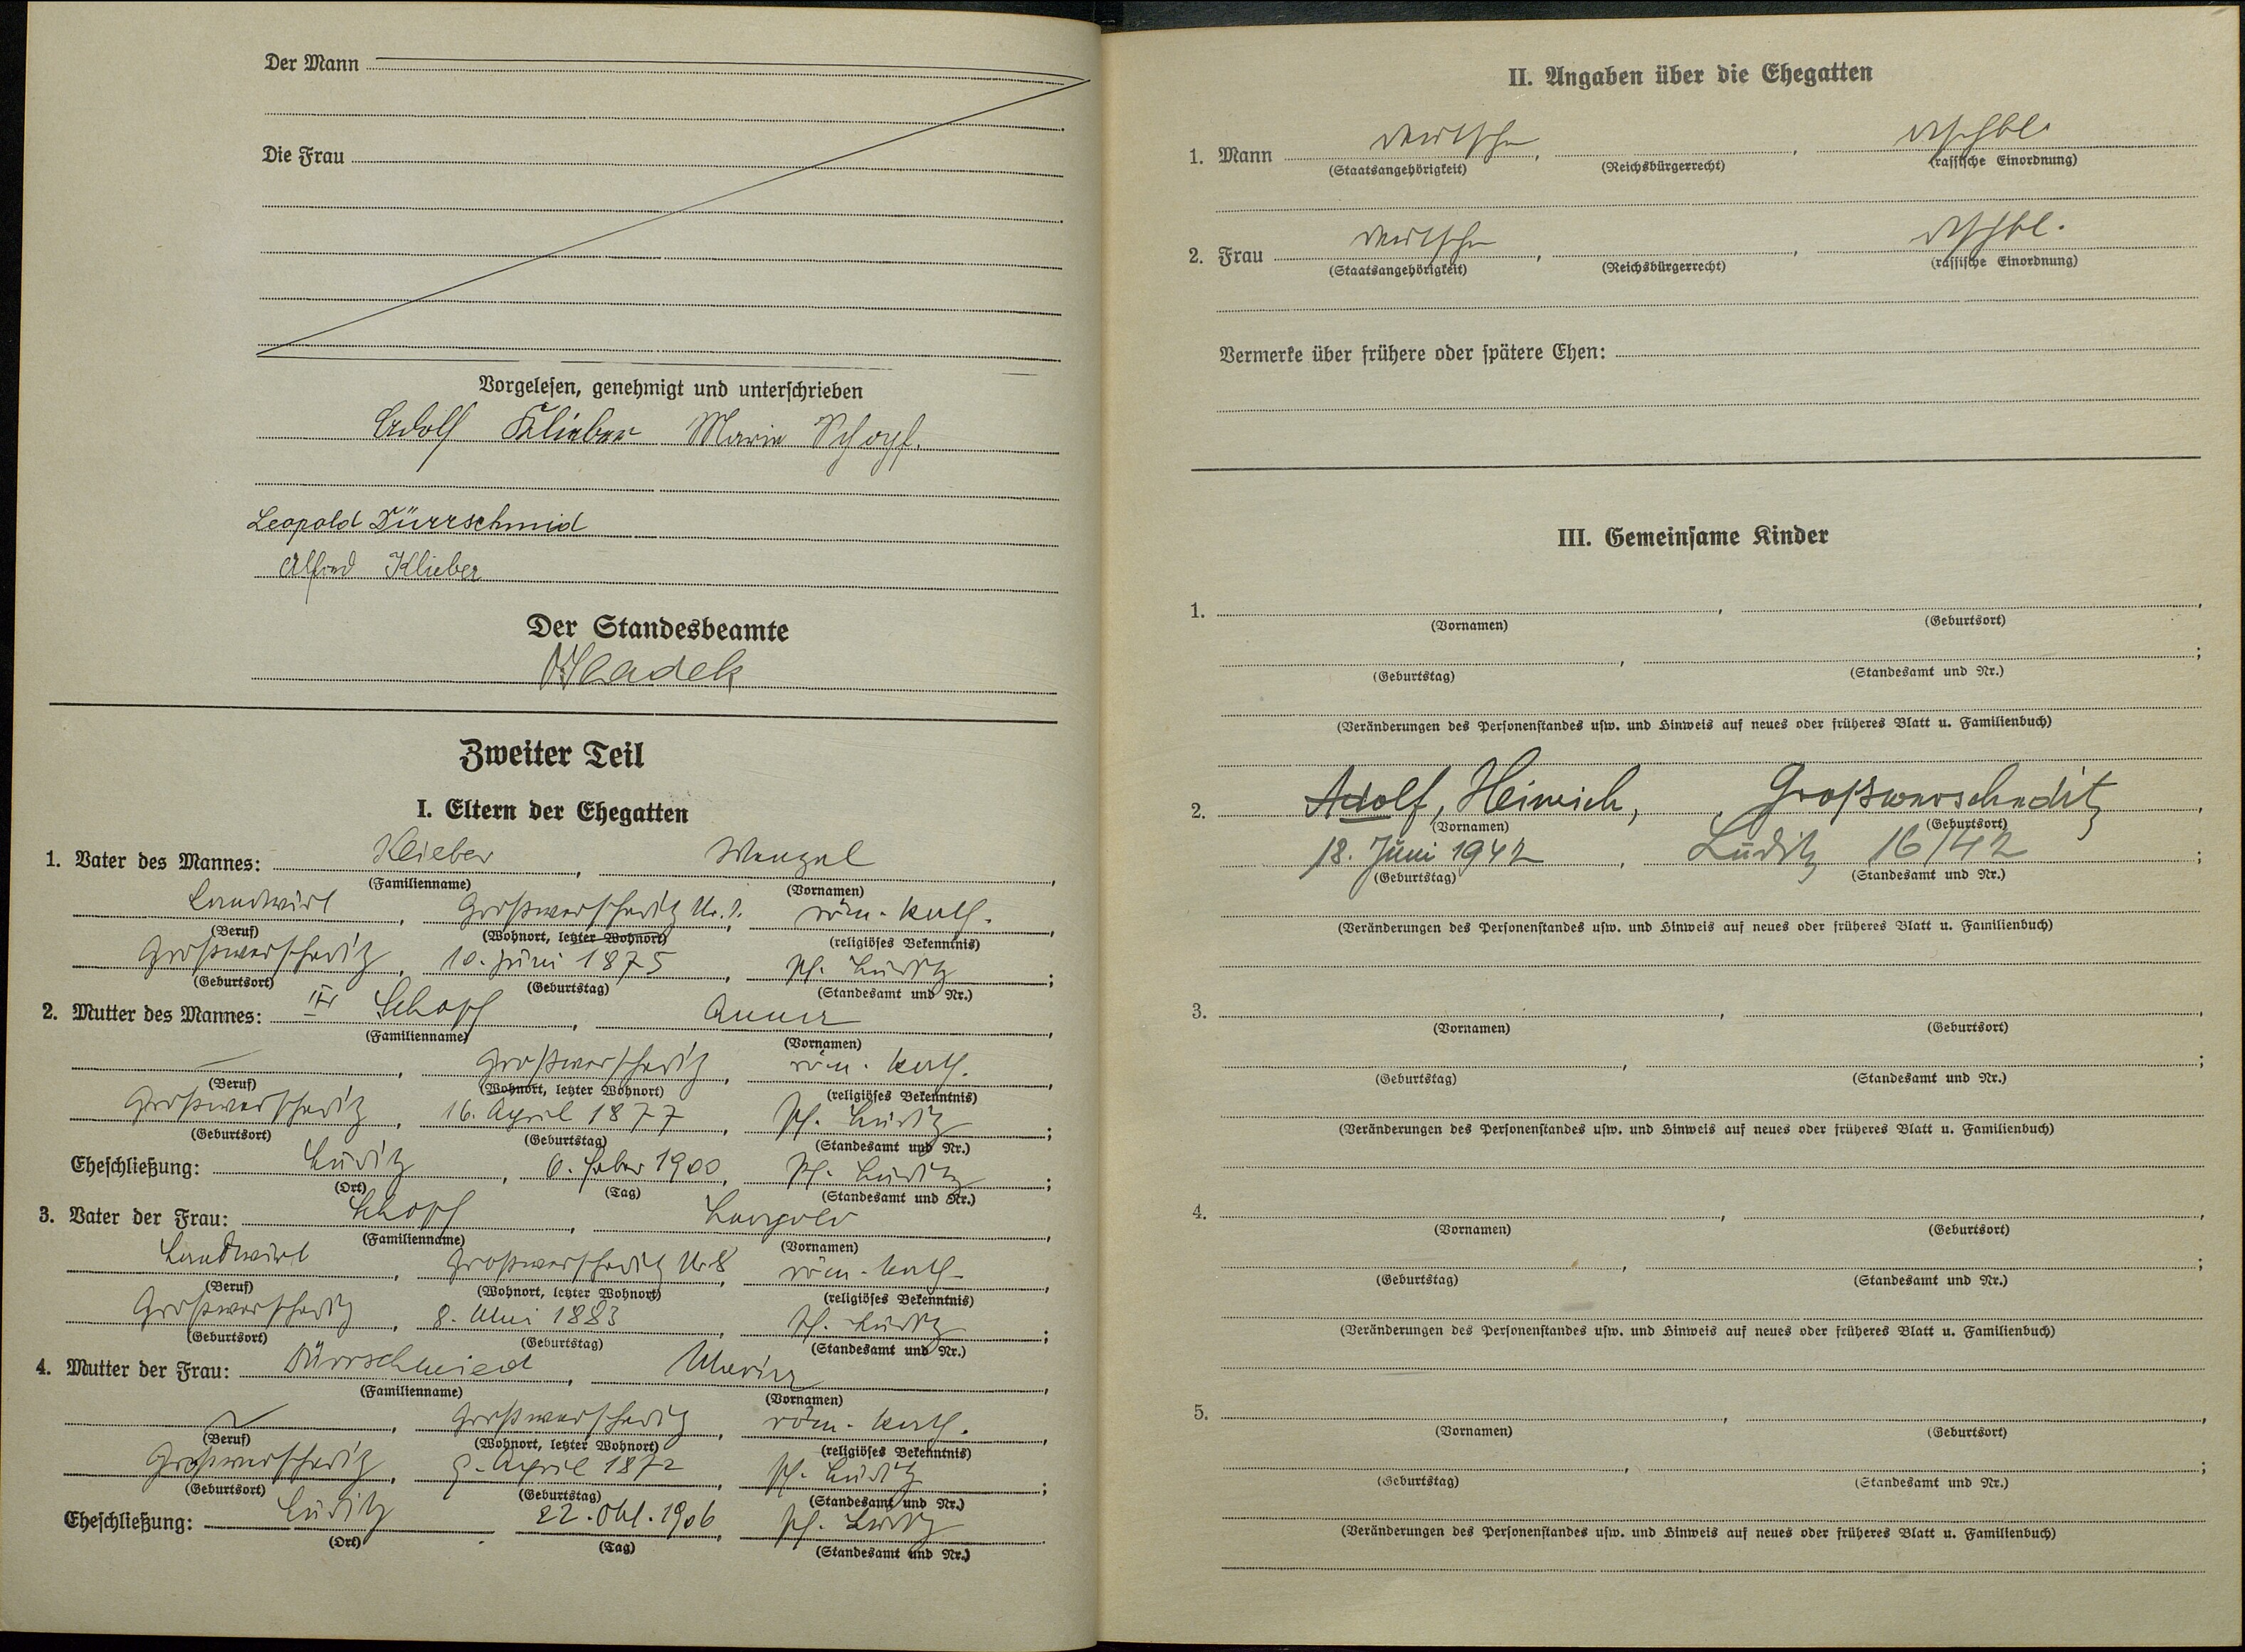 Der Mann
Die Frau
Vorgelesen, genehmigt und unterschrieben
Adolf Klieber Marie Schopf.
Leopold Dürrschmid
Alfred Klieber
Der Standesbeamte
Zweiter Teil
I. Eltern der Ehegatten
1. Vater des Mannes: Klieber, Wenzel,
(Familienname) (Vornamen)
Landwirt, Großwerscheditz Nr. , röm. kath.,
(Beruf) (Wohnort, letzter Wohnort) (religiöses Bekenntnis)
Großwerscheditz, 10. Juni 1875, Pf. Luditz;
(Geburtsort) (Geburtstag) (Standesamt und Nr.)
2. Mutter des Mannes: Schopf, Anna,
(Familienname) (Vornamen)
—, Großwerscheditz, röm. kath.,
(Beruf) (Wohnort, letzter Wohnort) (religiöses Bekenntnis)
Großwerscheditz, 16. April 1877, Pf. Luditz;
(Geburtsort) (Geburtstag) (Standesamt und Nr.)
Eheschließung: Luditz, 6. Feber 1900, Pf. Luditz;
(Ort) (Tag) (Standesamt und Nr.)
3. Vater der Frau: Schopf, Leopold,
(Familienname) (Vornamen)
Landwirt, Großwerscheditz Nr. 8, röm. kath.,
(Beruf) (Wohnort, letzter Wohnort) (religiöses Bekenntnis)
Großwerscheditz, 8. Mai 1883, Pf. Luditz;
(Geburtsort) (Geburtstag) (Standesamt und Nr.)
4. Mutter der Frau: Dürrschmied, Maria,
(Familienname) (Vornamen)
—, Großwerscheditz, röm. kath.,
(Beruf) (Wohnort, letzter Wohnort) (religiöses Bekenntnis)
Großwerscheditz, 9. April 1872, Pf. Luditz;
(Geburtsort) (Geburtstag) (Standesamt und Nr.)
Eheschließung: Luditz, 22. Okt. 1906, Pf. Luditz
(Ort) (Tag) (Standesamt und Nr.)
II. Angaben über die Ehegatten
1. Mann deutsche, , dtschbl.
(Staatsangehörigkeit) (Reichsbürgerrecht) (rassische Einordnung)
2. Frau deutsche, , dtschbl.
(Staatsangehörigkeit) (Reichsbürgerrecht) (rassische Einordnung)
Vermerke über frühere oder spätere Ehen:
III. Gemeinsame Kinder
1. , ,
(Vornamen) (Geburtsort)
, ;
(Geburtstag) (Standesamt und Nr.)
(Veränderungen des Personenstandes usw. und Hinweis auf neues oder früheres Blatt u. Familienbuch)
2. Adolf, Heinrich, Großwerscheditz,
(Vornamen) (Geburtsort)
18. Juni 1942, Luditz 16/42;
(Geburtstag) (Standesamt und Nr.)
(Veränderungen des Personenstandes usw. und Hinweis auf neues oder früheres Blatt u. Familienbuch)
3. , ,
(Vornamen) (Geburtsort)
, ;
(Geburtstag) (Standesamt und Nr.)
(Veränderungen des Personenstandes usw. und Hinweis auf neues oder früheres Blatt u. Familienbuch)
4. , ,
(Vornamen) (Geburtsort)
, ;
(Geburtstag) (Standesamt und Nr.)
(Veränderungen des Personenstandes usw. und Hinweis auf neues oder früheres Blatt u. Familienbuch)
5. , ,
(Vornamen) (Geburtsort)
, ;
(Geburtstag) (Standesamt und Nr.)
(Veränderungen des Personenstandes usw. und Hinweis auf neues oder früheres Blatt u. Familienbuch)